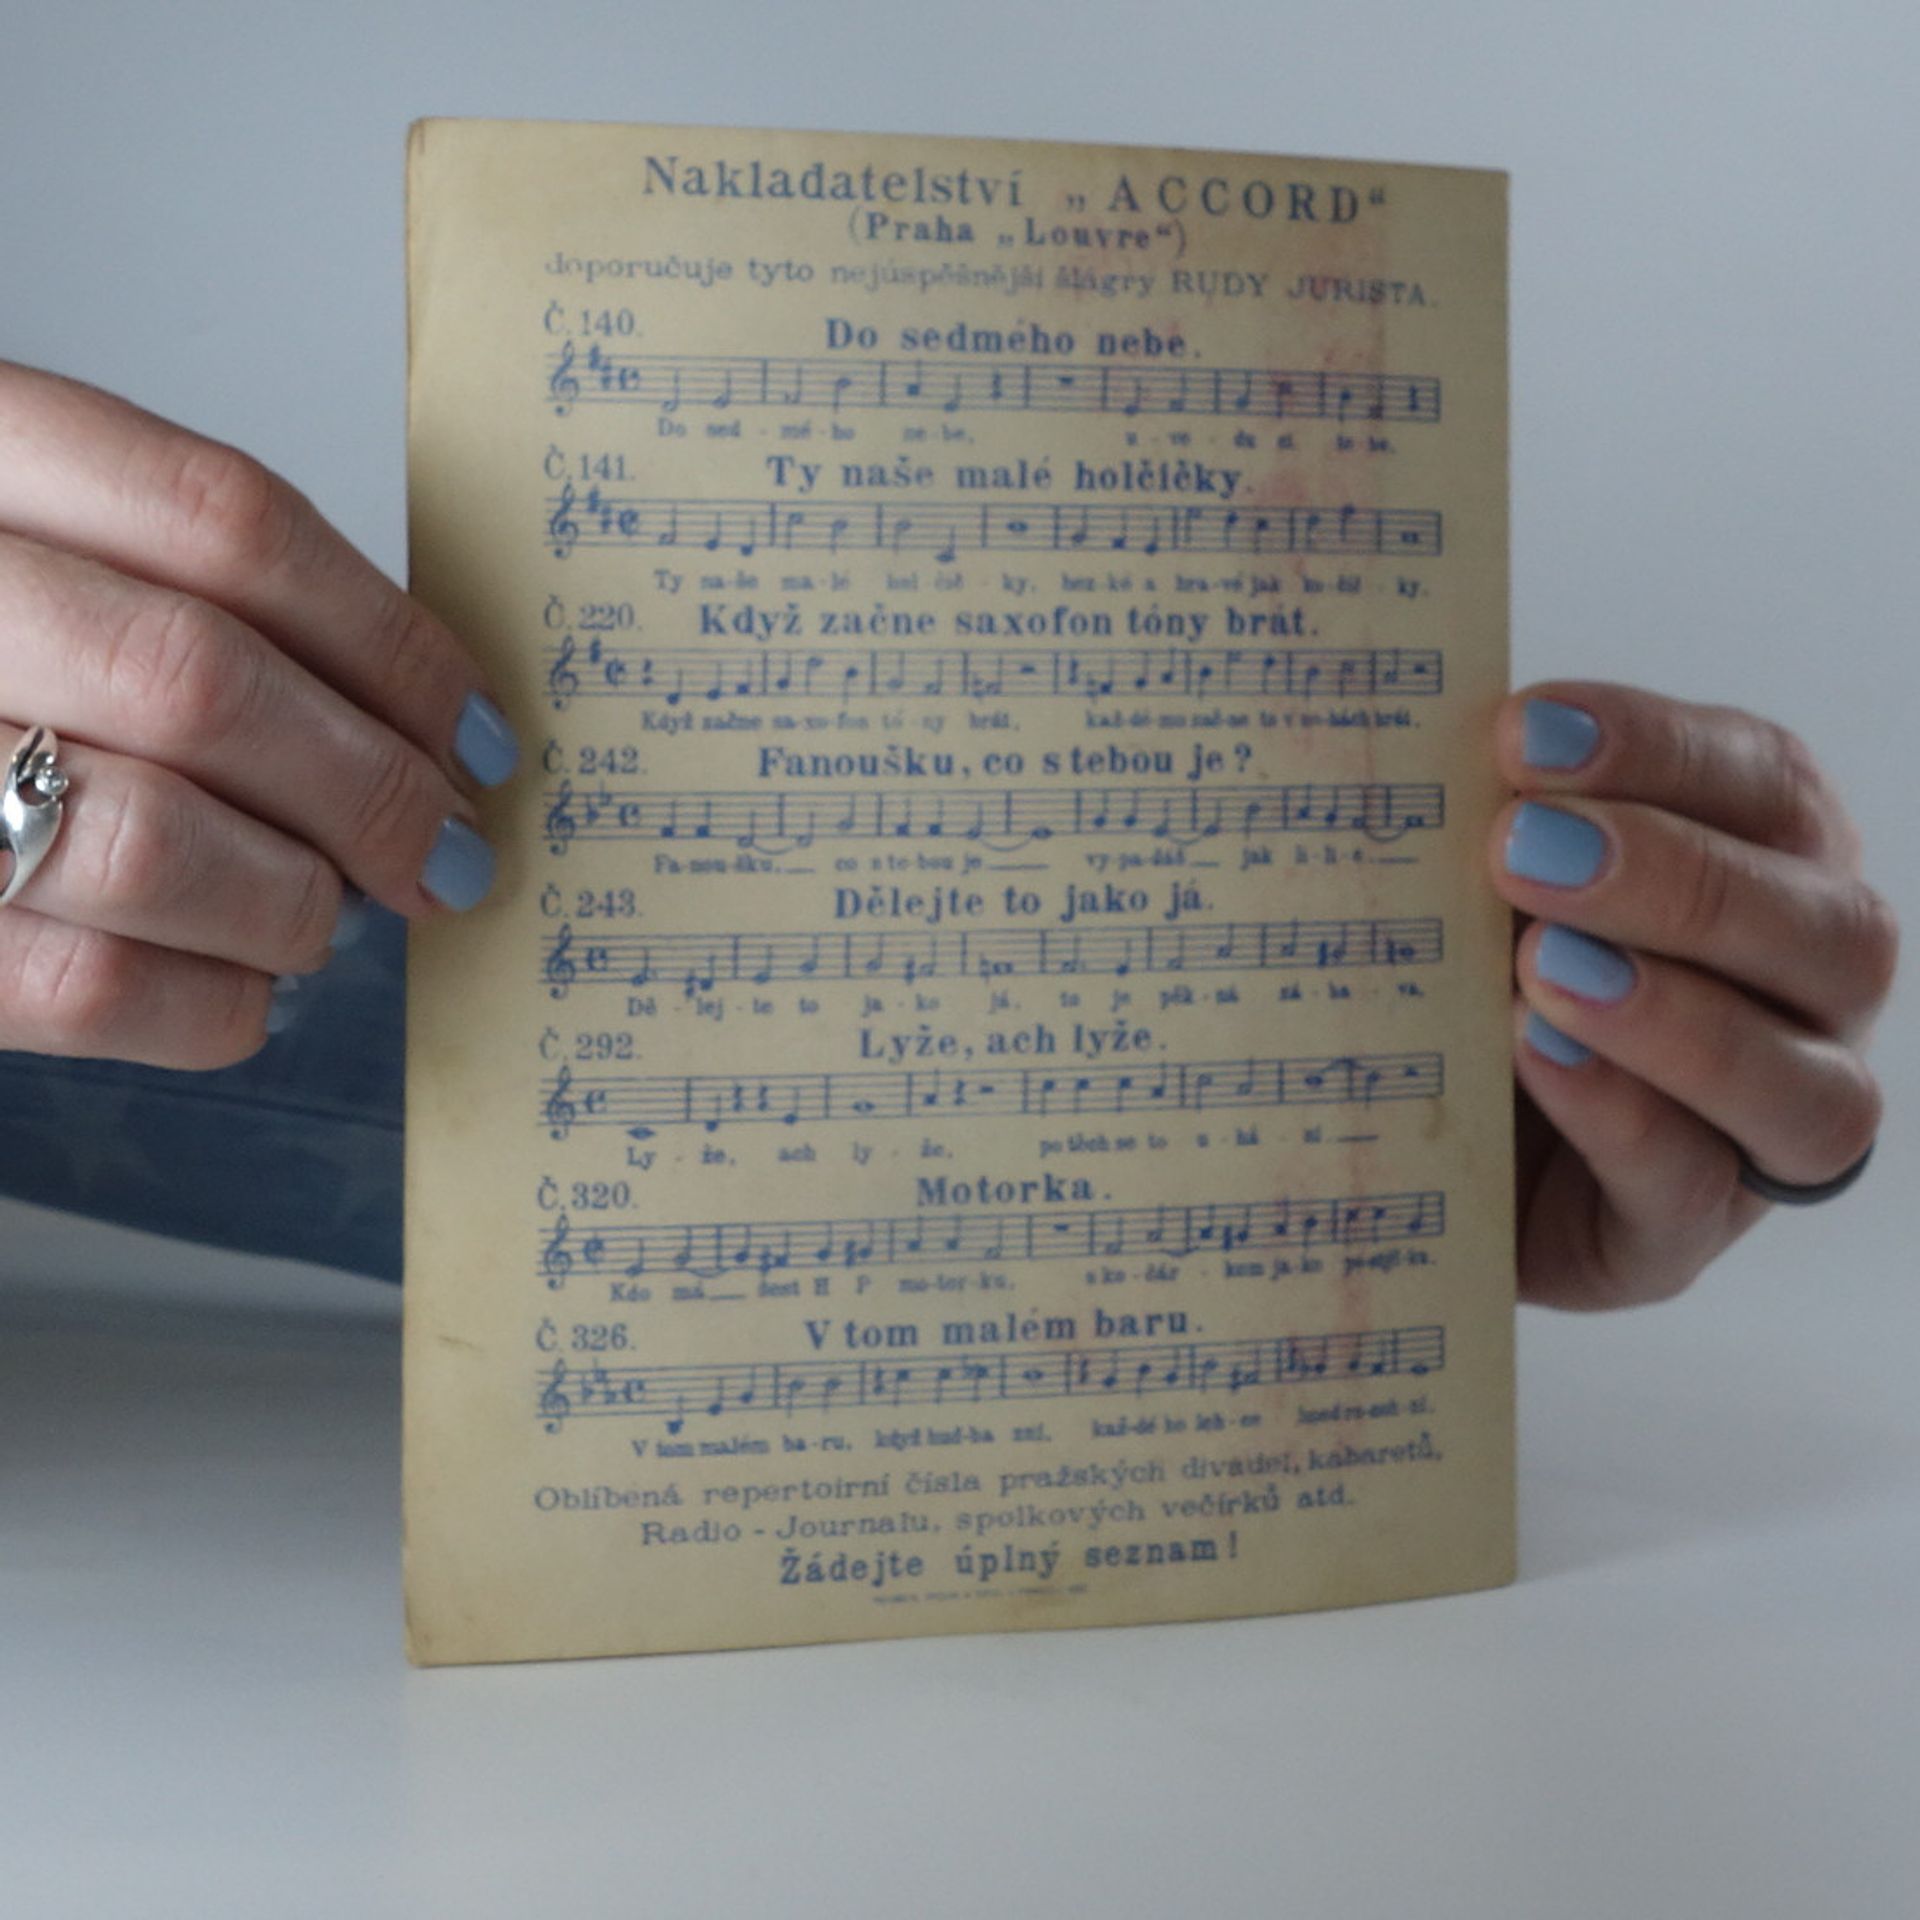 Nakladatelství „ACCORD“
(Praha „Louvre“)
doporučuje tyto nejúspěšnější šlágry RUDY JURISTA.
Č. 140. Do sedmého nebe.
Do sed - mé - ho ne - be, u - ve - du si te - be.
Č. 141. Ty naše malé holčičky.
Ty na - še ma - lé hol - čič - ky, hez - ké a hra - vé jak ko - čič - ky.
Č. 220. Když začne saxofon tóny brát.
Když začne sa - xo - fon tó - ny brát, kaž - dé - mu začne to v no - hách hrát.
Č. 242. Fanoušku, co s tebou je?
Fa - nou - šku, co s te - bou je vy - pa - dáš jak li - li - e.
Č. 243. Dělejte to jako já.
Dě - lej - te to ja - ko já, to je pěk - ná zá - ba - va,
Č. 292. Lyže, ach lyže.
Ly - že, ach ly - že, po těch se to u - há - ní
Č. 320. Motorka.
Kdo má šest H P mo - tor - ku, s ko - čár - kem ja - ko
Č. 326. V tom malém baru.
V tom malém ba - ru, když hud - ba zní, kaž - dé ho leh - ce
Oblíbená repertoirní čísla pražských divadel, kabaretů,
Radio - Journalu, spolkových večírků atd.
Žádejte úplný seznam!